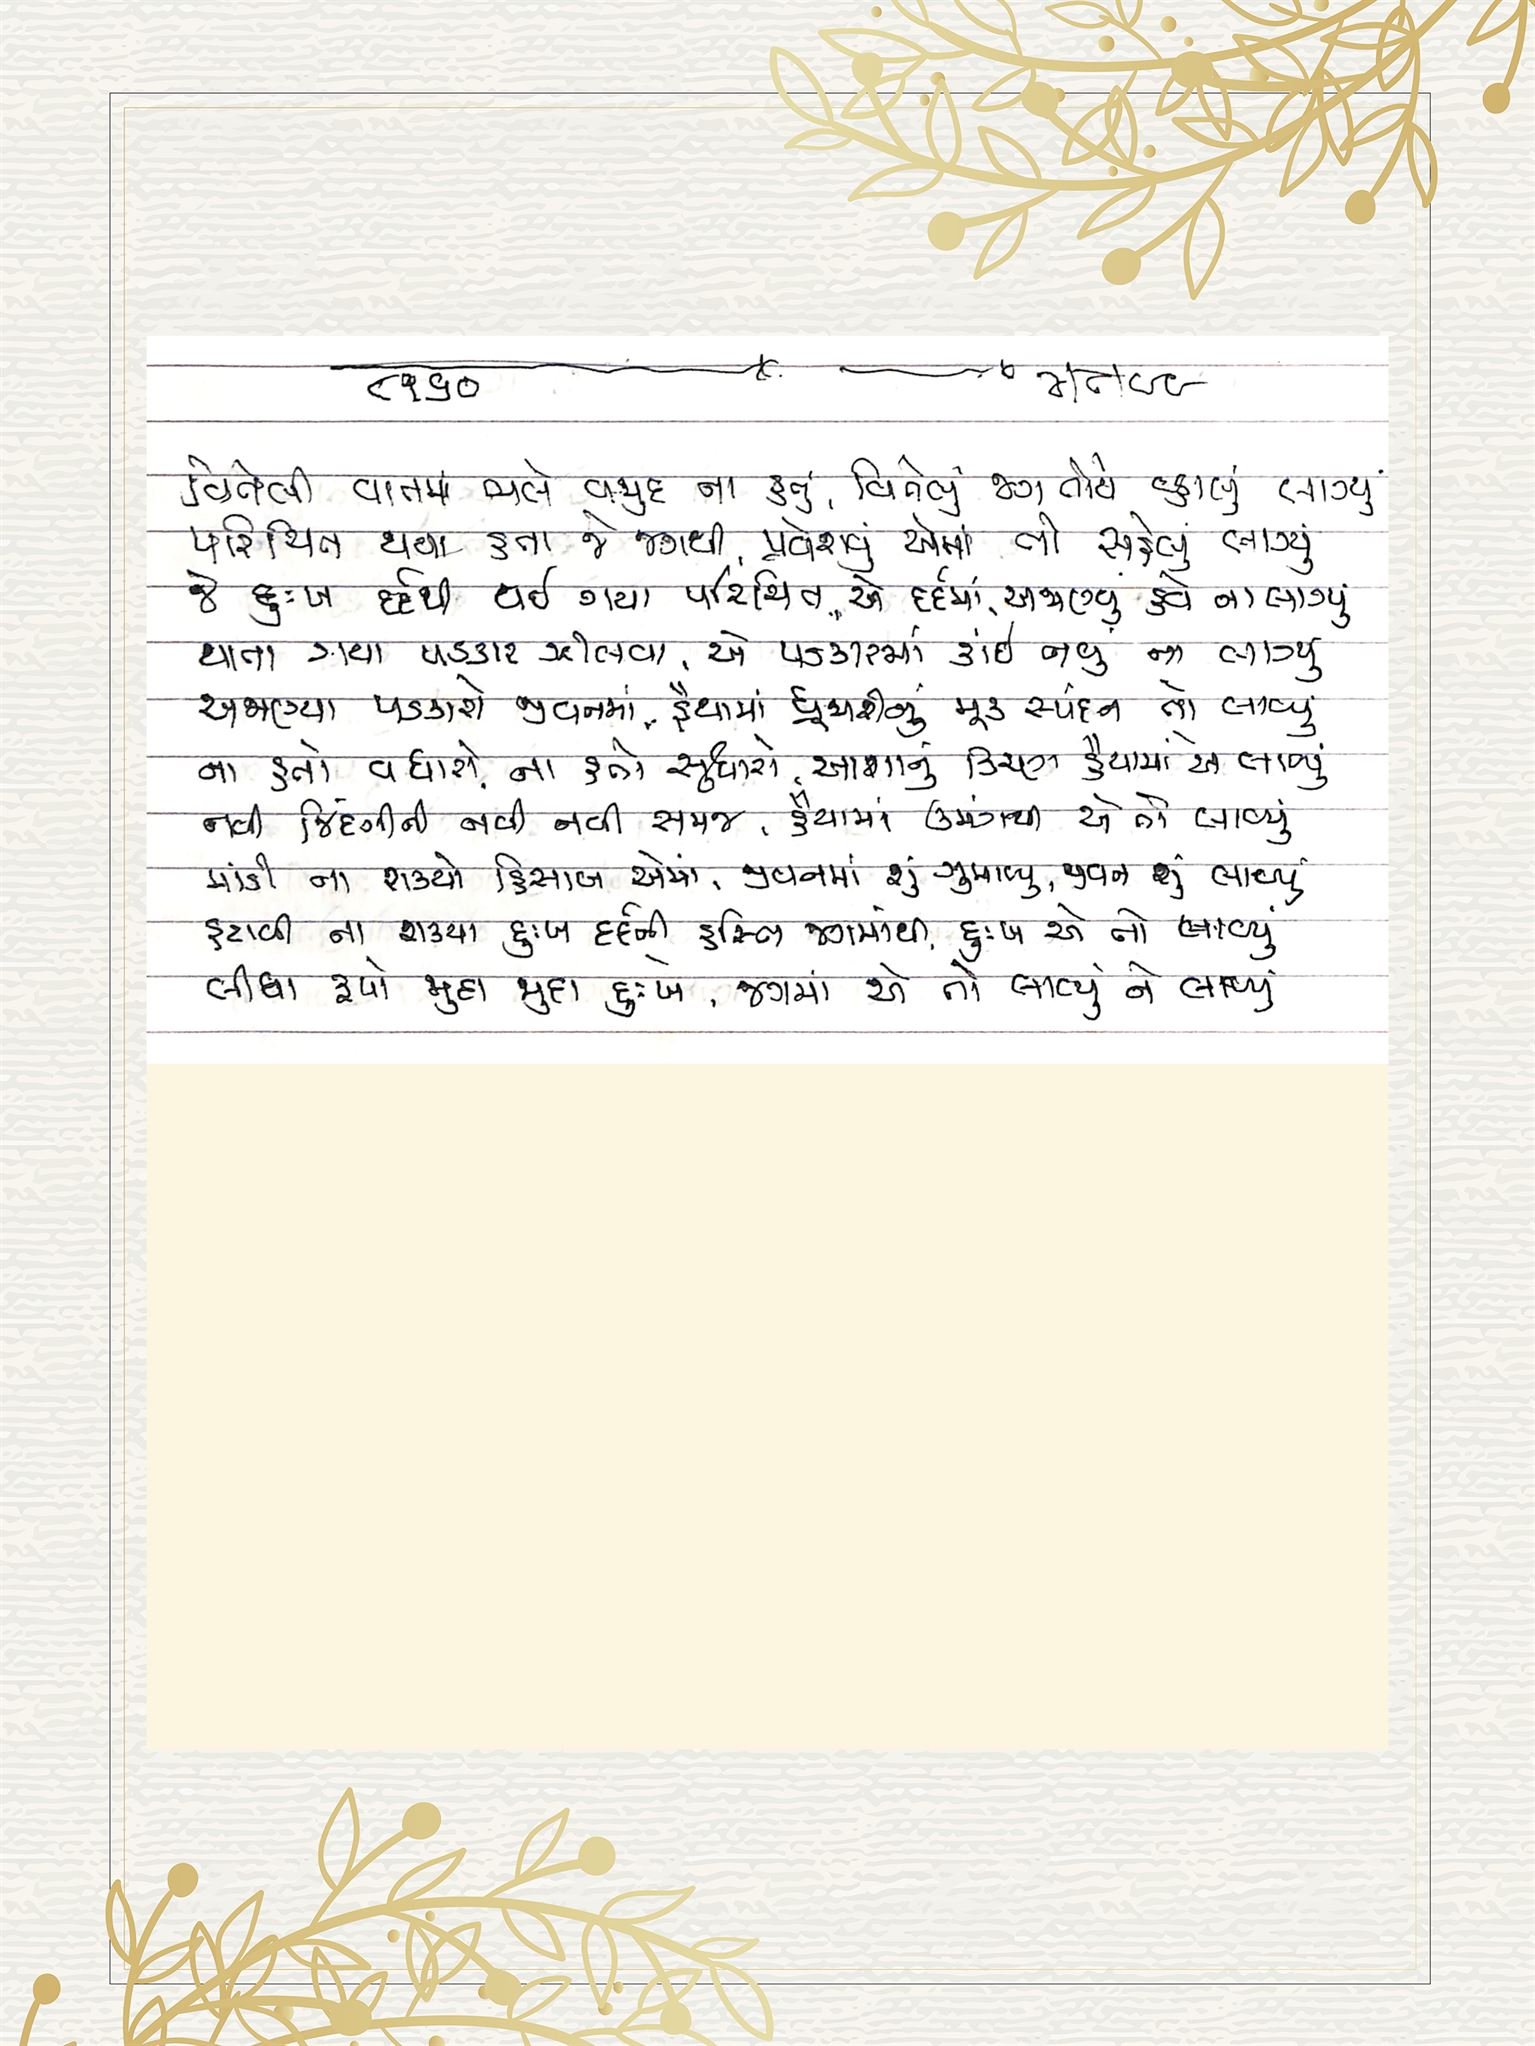 ૮૧૬૦
વિતેલી વાતમાં ભલે વજુદ ના હતું, વિતેલું જગ તોયે વ્હાલું લાગ્યું
પરિચિત થયા હતા જે જગથી, પ્રવેશવું એમાં તો સહેલું લાગ્યું
જે દુઃખ દર્દથી થઈ ગયા પરિચિત, એ દર્દમાં, અજાણ્યું હવે ના લાગ્યું
થાતા ગયા પડકાર ઝીલવા, એ પડકારમાં કાંઈ નવું ના લાગ્યું
અજાણ્યા પડકારો જીવનમાં, હૈયામાં ધ્રૂજારીનું મૂક સ્પંદન તો લાવ્યું
ના હતો વધારો, ના હતો સુધારો, આશાનું કિરણ હૈયામાં એ લાવ્યું
નવી જિંદગીની નવી નવી સમજ, હૈયામાં ઉમંગથી એ તો લાવ્યું
માંડી ના શક્યો હિસાબ એમાં, જીવનમાં શું ગુમાવ્યુ, જીવન શું લાવ્યું
હટાવી ના શક્યા દુઃખ દર્દની હસ્તિ જગમાંથી, દુઃખ એ તો લાવ્યું
લીધા રૂપો જુદા જુદા દુઃખે, જગમાં એ તો લાવ્યું ને લાવ્યું